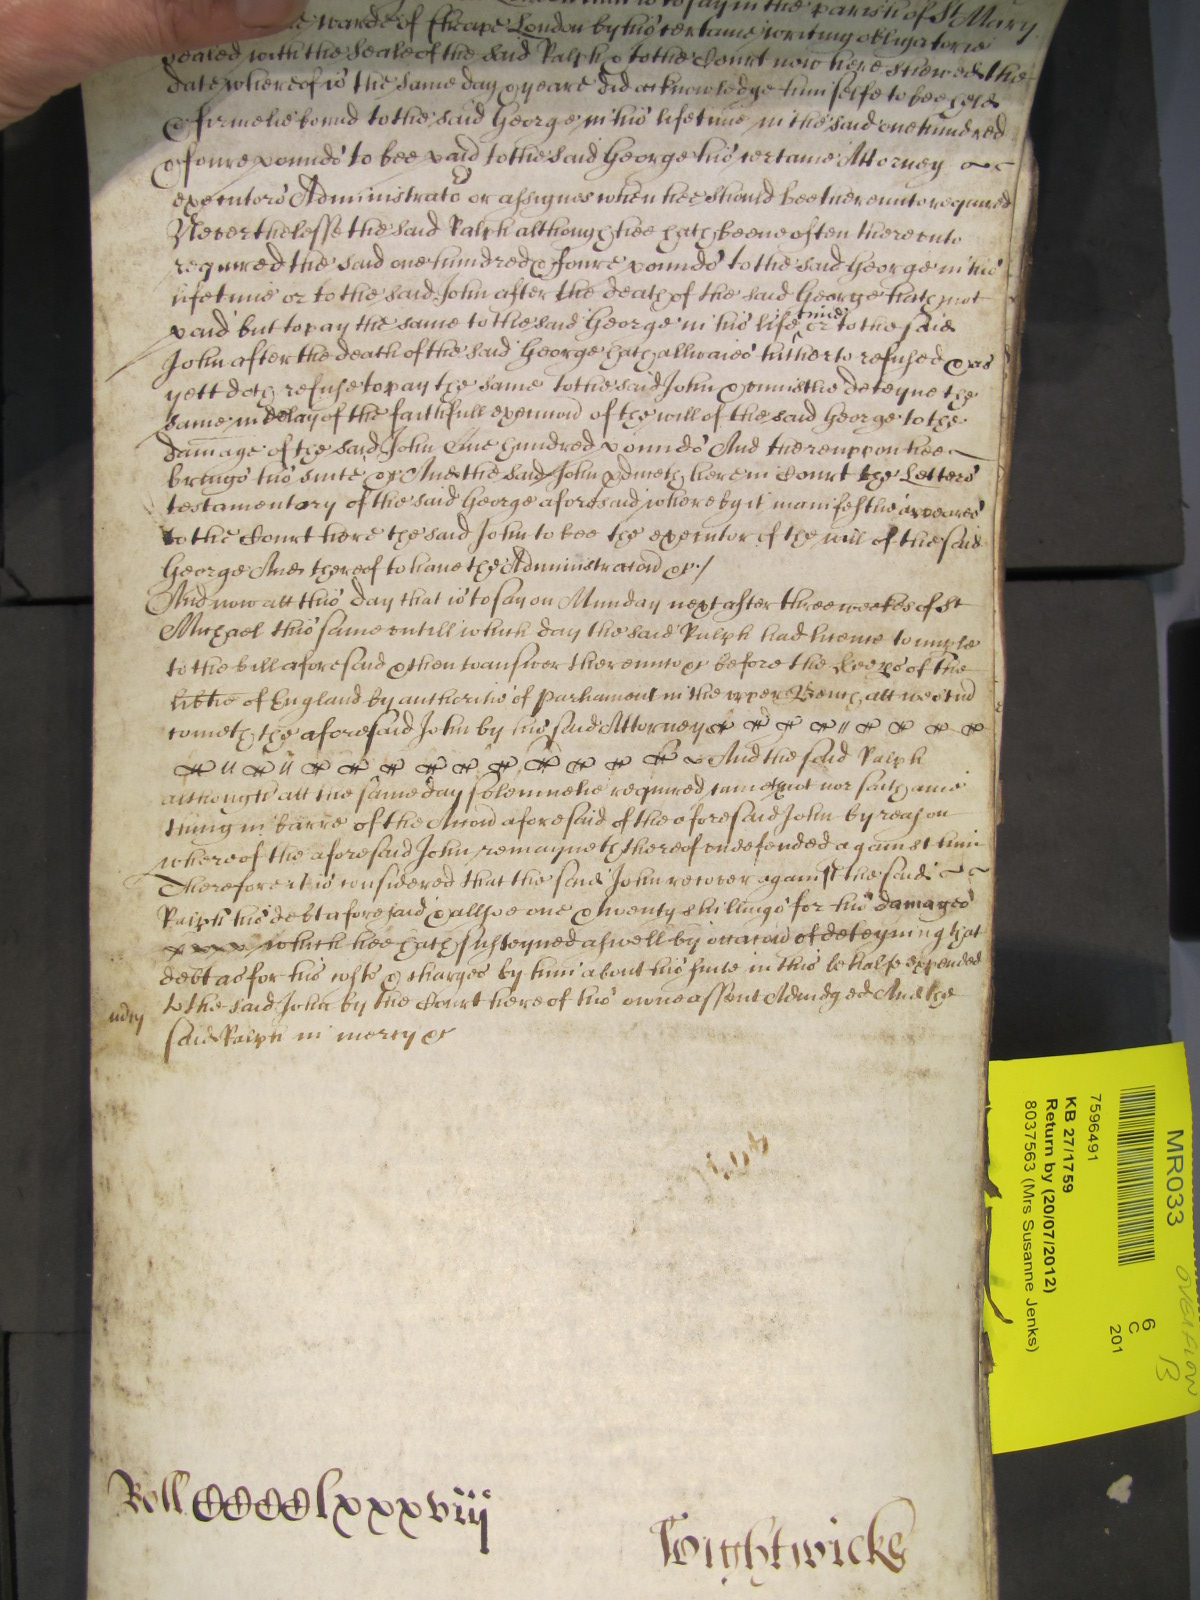 to say in the parish of St Mary
warde of Cheape London by his certaine writing obligatorie
sealed with the seale of the said Ralph & to the Court now here shewed the
date whereof is the same day & yeare did acknowledge himselfe to bee held
& firmelie bound to the said George in his lifetime in the said one hundred
& foure pounds to bee paid to the said George his certaine Attorney
executors Administrators or assignes when hee should bee thereunto required
Neverthelesse the said Ralph although hee hath beene often thereunto
required the said one hundred & foure pounds to the said George in his
lifetime or to the said John after the death of the said George hath not
paid but to pay the same to the said George in his life time or to the said
John after the death of the said George hath allwaies hitherto refused & as
yett doth refuse to pay the same to the said John & uniustlie deteyne the
same in delay of the faithfull execucion of the will of the said George to the
damage of the said John One hundred pounds And thereuppon hee
brings his suite &c And the said John p'duceth here in Court the Letters
testamentory of the said George aforesaid whereby it manifestlie appeares
to the Court here the said John to bee the executor of the will of the said
George And thereof to have the Administracion &c /
And now att this day that is to say on Munday next after three weekes of St
Michael this same untill which day the said Ralph had licence to imple
to the bill aforesaid & then to answer thereunto &c before the Keepers of the
lib'tie of England by authoritie of Parliament in the upper Bench att Westm'
cometh the aforesaid John by his said Attorney
And the said Ralph
although att the same day solemnelie required came not nor saith anie
thing in barre of the Accion aforesaid of the aforesaid John by reason
whereof the aforesaid John remayneth thereof undefended against him
Therefore it is considered that the said John recover against the said
Ralph his debt aforesaid & allsoe one & twenty shillings for his damages
which hee hath susteyned aswell by occacion of deteyning that
debt as for his costs & charges by him about his suite in this behalfe expended
to the said John by the Court here of his owne assent Adiudged And the
m'cy
said Ralph in mercy &c
Roll CCCClxxxviij
Wightwicke
MR033
7596491
KB 27/1759
Return by (20/07/2012)
8037563 (Mrs Susanne Jenks)
6
C
201
OVERFLOW
B